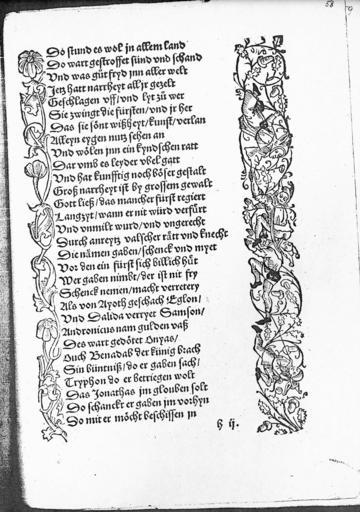 58
Do stund es wol jn allem land
Do wart gestroffet sünd vnd schand
Vnd was güt fryd jnn aller welt
Jetz hatt narrheyt all jr gezelt
Geschlagen vff / vnd lyt zů wer
Sie zwingt die fürsten / vnd jr her
Das sie sönt wißheyt / kunst / verlan
Alleyn eygen nutz sehen an
Vnd wölen jnn ein kyndschen ratt
Dar vmb es leyder vbel gatt
Vnd hat kunfftig noch böser gestalt
Groß narrheyt ist by grossem gewalt
Gott ließ / das mancher fürst regiert
Langzyt / wann er nit würd verfürt
Vnd vnmilt wurd / vnd vngerecht
Durch anreytz valscher rätt vnd knecht
Die nämen gaben / schenck vnd myet
Vor den ein fürst sich billich hüt
Wer gaben nimbt / der ist nit fry
Schenck nemen / macht verretery
Als von Ayoth geschach Eglon /
Vnd Dalida verryet Samson /
Andronicus nam gulden vaß
Des wart gedötet Onyas /
Ouch Benadab der künig brach
Sin püntniß / do er gaben sach /
Tryphon do er betriegen wolt
Das Jonathas jm glouben solt
Do schanckt er gaben jm vorhyn
Do mit er möcht beschissen jn
h ij.